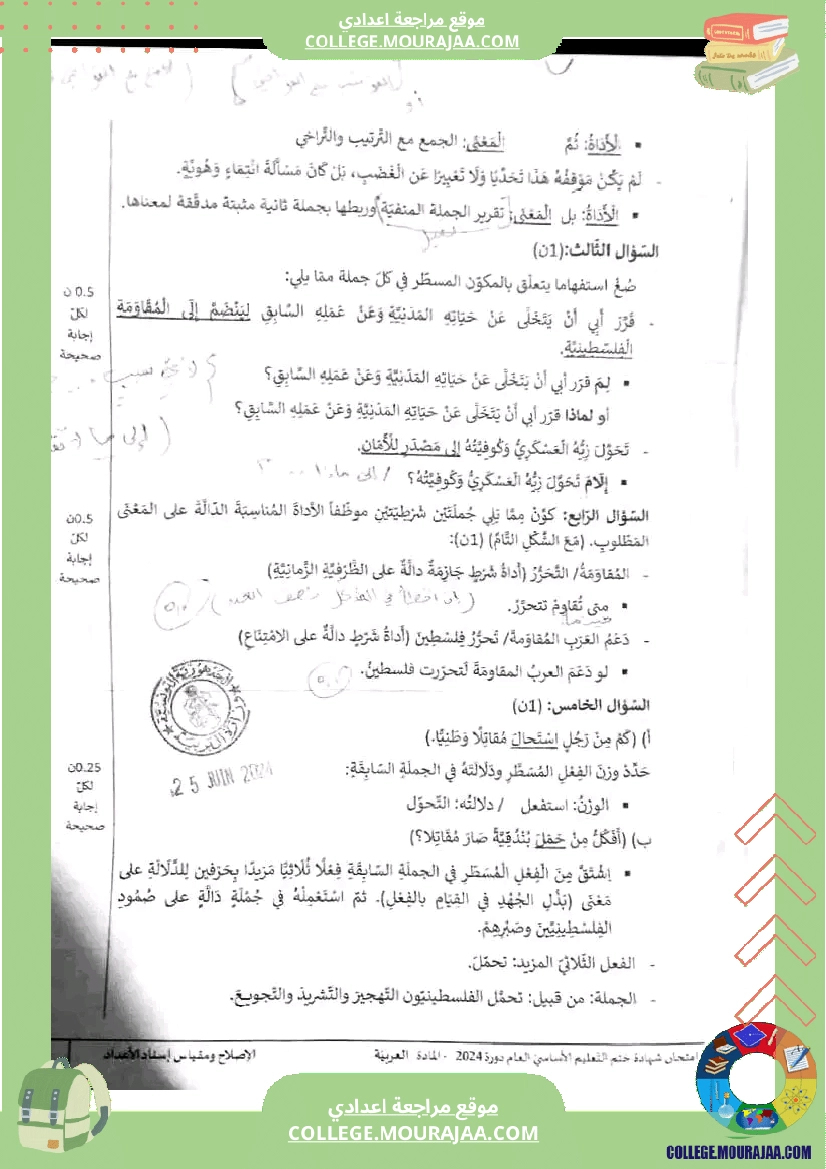 موقع مراجعة اعدادي
COLLEGE.MOURAJAA.COM
▪ الْأَدَاةُ: ثُمَّ الْمَعْنَى: الجمع مع التّرتيب والتّراخي
- لَمْ يَكُنْ مَوْقِفُهُ هَذَا تَحَدِّيًا وَلَا تَعْبِيرًا عَنِ الْغَضَبِ، بَلْ كَانَ مَسْأَلَةَ انْتِمَاءٍ وَهُوِيَّةٍ.
▪ الْأَدَاةُ: بل الْمَعْنَى: تقرير الجملة المنفيّة وربطها بجملة ثانية مثبتة مدقّقة لمعناها.
السّؤال الثّالث:(1ن)
صُغْ استفهاما يتعلّق بالمكوّن المسطّر في كلّ جملة ممّا يلي:
0.5 ن لكلّ إجابة صحيحة
- قَرَّرَ أَبِي أَنْ يَتَخَلَّى عَنْ حَيَاتِهِ المَدَنِيَّةِ وَعَنْ عَمَلِهِ السَّابِقِ لِيَنْضَمَّ إِلَى الْمُقَاوَمَةِ
الْفِلِسْطِينِيَّةِ.
▪ لِمَ قرّر أبي أنْ يَتَخَلَّى عَنْ حَيَاتِهِ المَدَنِيَّةِ وَعَنْ عَمَلِهِ السَّابِقِ؟
أو لماذا قرّر أبي أنْ يَتَخَلَّى عَنْ حَيَاتِهِ المَدَنِيَّةِ وَعَنْ عَمَلِهِ السَّابِقِ؟
- تَحَوَّلَ زِيُّهُ الْعَسْكَرِيُّ وَكُوفِيَّتُهُ إلى مَصْدَرٍ لِلْأَمَانِ.
▪ إِلَامَ تَحَوَّلَ زِيُّهُ الْعَسْكَرِيُّ وَكُوفِيَّتُهُ؟ / إلى ماذا
السّؤال الرّابع: كَوِّنْ مِمَّا يَلِي جُملَتَيْنِ شَرْطِيَتيْنِ موظّفاً الأداةَ المُناسِبَةَ الدّالّةَ على المَعْنَى
المَطْلوبِ. (مَعَ الشَّكْلِ التَّامِّ) (1ن):
0.5ن لكلّ إجابة صحيحة
- المُقاوَمَةُ/ التَّحَرُّرُ (أداةُ شَرْطٍ جَازِمَةٌ دالّةٌ على الظَّرْفِيَّةِ الزَّمانِيَّةِ)
▪ متى تُقاوِمْ تتحرَّرْ.
- دَعَمُ العَرَبِ المُقاوَمةَ/ تَحرُّرُ فِلِسْطِينَ (أَداةُ شَرْطٍ دالّةٌ على الامْتِنَاعِ)
▪ لو دَعَمَ العربُ المقاومَةَ لَتحرّرت فلسطينُ.
السّؤال الخامس: (1ن)
أ) (كَمْ مِنْ رَجُلٍ اسْتَحالَ مُقاتِلًا وَطَنِيًّا.)
حَدِّدْ وزنَ الفِعْلِ المُسَطَّرِ ودَلالَتَهُ في الجملةِ السّابقَةِ:
0.25ن لكلّ إجابة صحيحة
▪ الوزْنُ: استفعل / دلالتُه: التّحوّل
ب) (أَفَكُلُّ مِنْ حَمَلَ بُنْدُقِيَّةً صَارَ مُقَاتِلا؟)
▪ اِشْتَقَّ مِنَ الْفِعْلِ الْمُسَطَّرِ في الجملَةِ السّابِقَةِ فِعْلًا ثُلَاثِيًّا مَزِيدًا بِحَرْفين لِلدَّلَالَةِ على
مَعْنَى (بَذْلِ الجُهْدِ في القِيَامِ بالفِعْلِ). ثمّ اسْتَعْمِلْهُ في جُمْلَةٍ دَالَّةٍ على صُمُودِ
الفِلسْطِينِيِّينَ وصَبْرِهِمْ.
- الفعل الثّلاثيّ المزيد: تحمّلَ.
- الجملة: من قبيل: تحمَّل الفلسطينيّون التّهجيرَ والتّشريدَ والتّجويعَ.
25 JUIN 2024
امتحان شهادة ختم التّعليم الأساسيّ العام دورة 2024 - المادة العربيّة الإصلاح ومقياس إسناد الأعداد
موقع مراجعة اعدادي
COLLEGE.MOURAJAA.COM
COLLEGE.MOURAJAA.COM